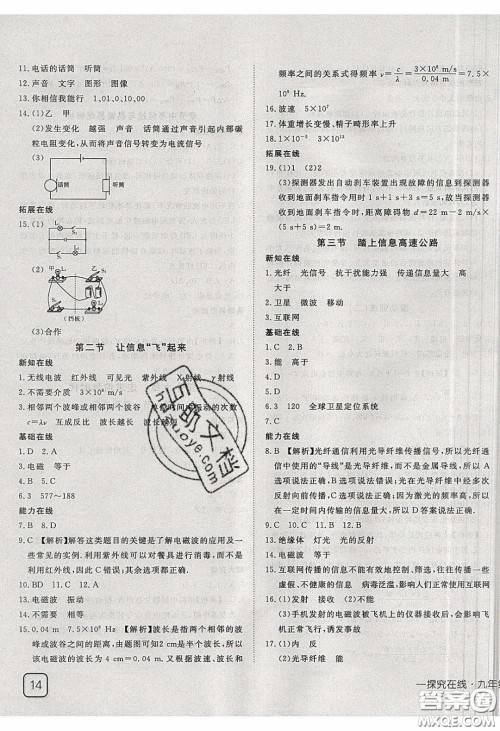 11. 电话的话筒 听筒
12. 声音 文字 图形 图像
13. 你相信我能行 1、01、0、10、00
14. (1)乙 甲
(2)发生变化 越强 声音 话筒通过声音引起内部碳
粒电阻变化,从而将声音信号转变为电流信号
(3)
话筒
听筒
拓展在线
15. (1)
S₁
(2)
甲
乙
(挡板)
(3)合作
第二节 让信息“飞”起来
新知在线
1. 无线电波 红外线 可见光 紫外线 X射线 γ射线
2. 不需要介质 3×10⁸ m/s
3. 相邻两个波峰或相邻两个波谷 单位时间内振动的次数
c=λν 互成反比 波长越长 波长越短
基础在线
1. D 2. A
4. 电磁波 等于
6. 3 577~188
能力在线
7. B 8. D
9. C 【解析】解答这类题目的关键是了解电磁波的应用及
一些常见的实例.利用紫外线可以对餐具进行消毒,不
利用红外线,因此C错误;其余选项都正确.
10. BD 11. C 12. A
13. 电磁波 振动
14. 不需要 相等
15. 0.04 m 7.5×10⁹ Hz 【解析】波长是指两个相邻的波
谷或波峰之间的距离,图中两个相邻波谷的距离为
4 cm,所以该电磁波的波长为4 cm=0.04 m;由波长与
14
频率之间的关系式得频率 ν=c/λ=3×10⁸ m/s/0.04 m=7.5×
10⁹ Hz.
16. 波速 5×10⁷
17. 体重增长变慢、精子畸形率上升
18. 1.5×10⁸ 3×10¹¹
拓展在线
19. (1)1 s (2)2
(3)探测器发出自动刹车装置出现故障的信息到探测器
收到地面刹车指令共用1 s+1 s+3 s=5 s,故当探测器
收到地面刹车指令时,前方障碍物的距离d=22 m-2 m/s
×(2 s+5 s)=8 m.
第三节 踏上信息高速公路
新知在线
1. 光纤 光信号 抗干扰能力强 传递信息量大 高
大于
2. 卫星 微波 移动
3. 互联网
基础在线
1. C 2. B
3. 能 高于
4. D 5. A
6. 3 120 全球卫星定位系统
7. C 8. A
能力在线
9. B 【解析】光纤通信利用光导纤维传播信号,因此光纤通
信中使用的“导线”是光导纤维,而不是金属导线,所以A
选项说法正确,B选项说法错误;在光导纤维中传播的是
激光,所以C选项说法正确;因为激光的频率高,能传递
的信息量大,所以D答案说法正确.
10. 绝缘体 灯光 光的反射
11. 电磁波 等于
12. A 13. B 14. C
15. 互联网传播的信息不能有效地控制、筛选,往往会传播一
些虚假、不健康的信息 病毒泛滥,影响互联网的正常使
用 互联网
16. (3)手机发射的电磁波被飞机上的仪器接收后,会干扰
正常飞行,诱发事故
17. (1)内 反
(2)光导纤维 能
一探究在线·九年级